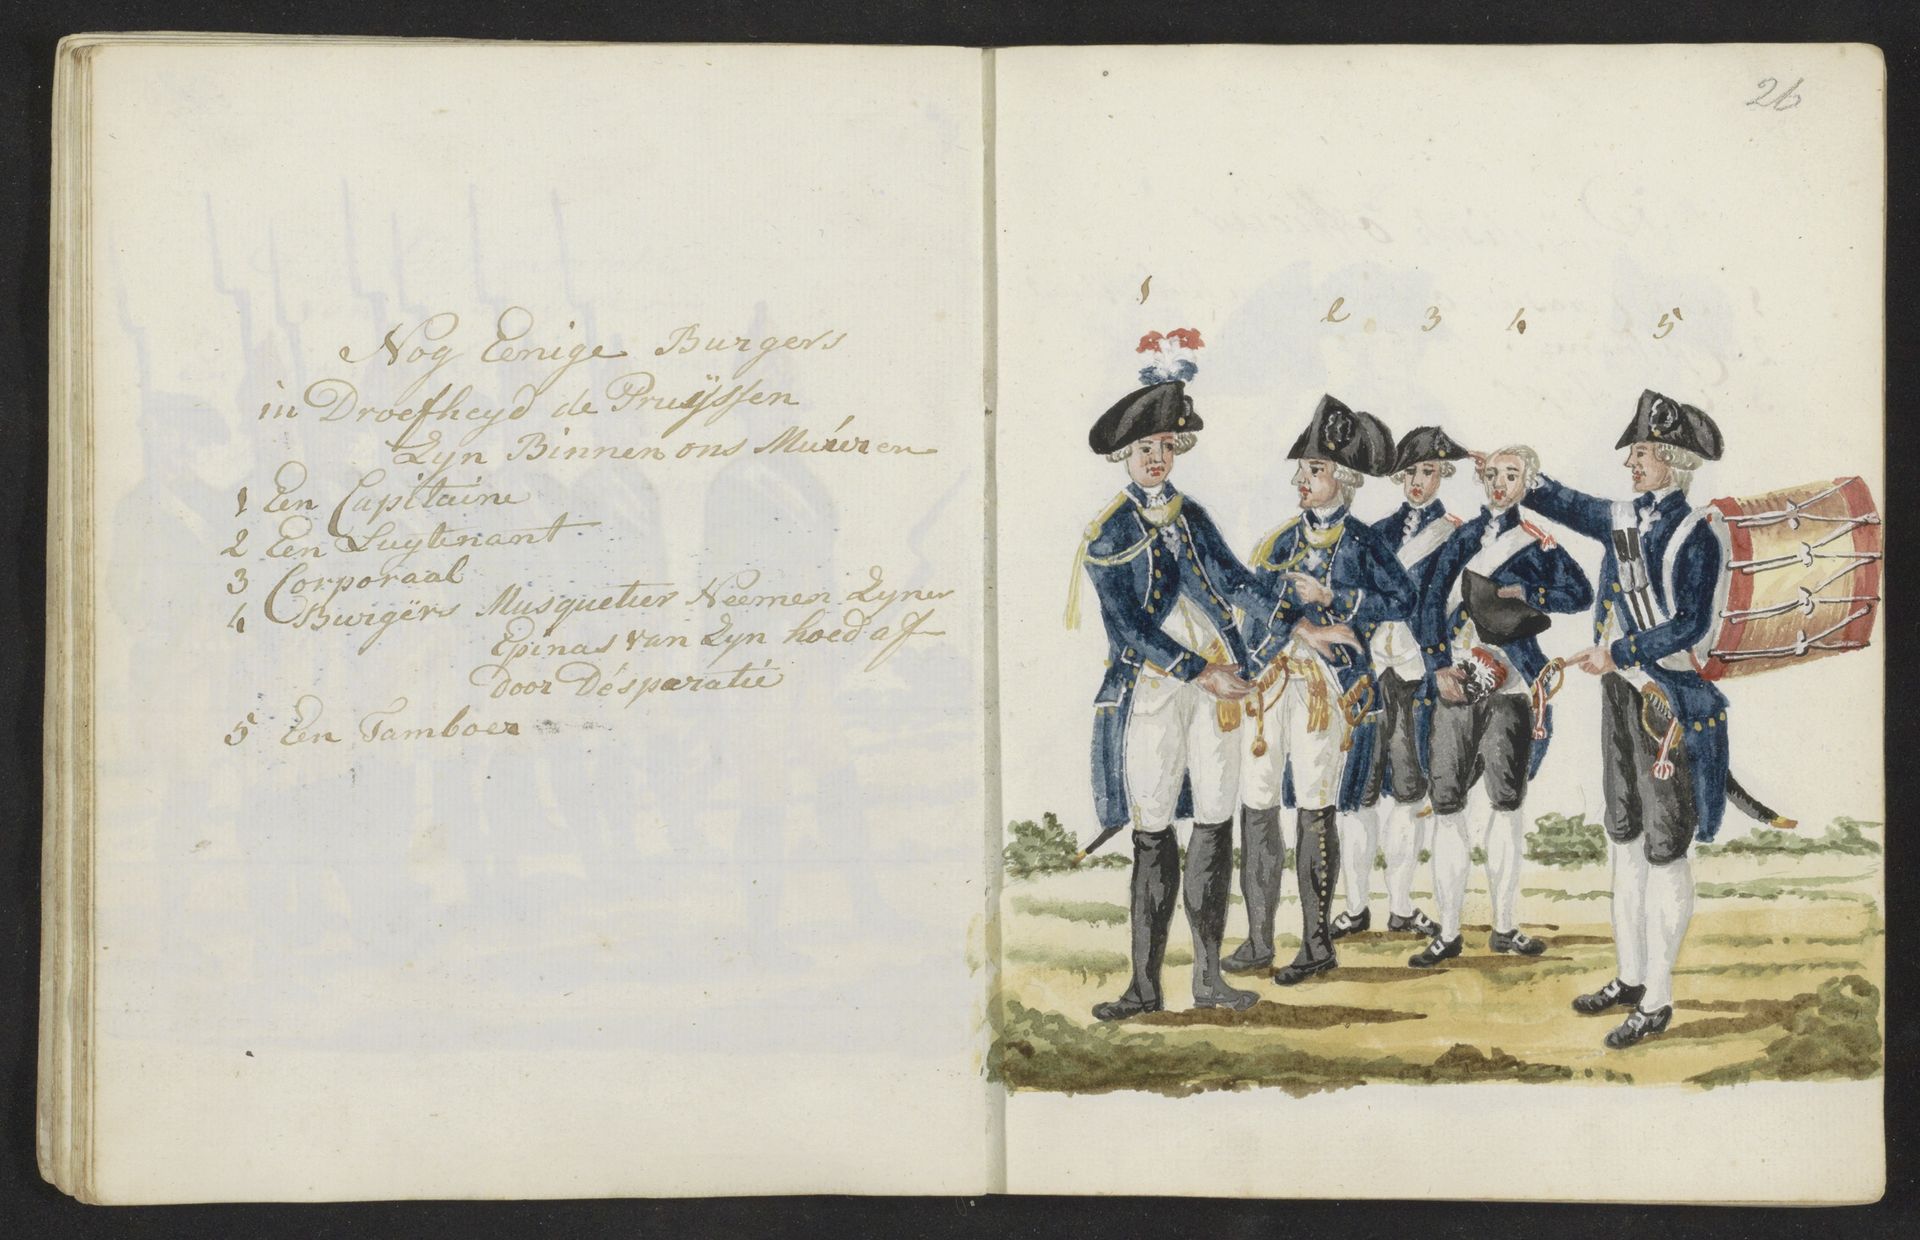 Nog Eenige Burgers
in Droefheyd de Pruÿssen
Zyn Binnen ons Muuren
1 Een Capitaine
2 Een Luytenant
3 Corporaal
4 Burgërs Musquetier Neemen Zyner
Epinas van Zyn hoed af
door Désparatié
5 Een Tamboer
26
1 2 3 4 5